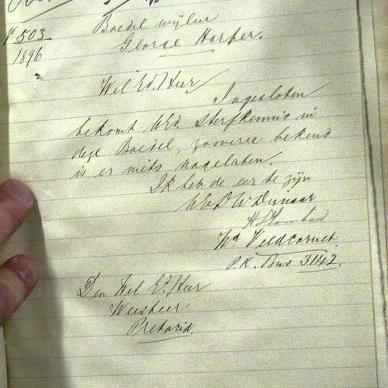 P 503
1896
Boedel wijlen
George Harper.
Wel Ed. Heer
Ingesloten
bekomt WEd. Sterfkennis in
deze Boedel, zooverre bekend
is er niets nagelaten.
Ik heb de eer te zijn
UEd DW Dienaar
Wd Veldcornet.
P.K. Bus 3142
Den Wel Ed. Heer
Weesheer
Pretoria.